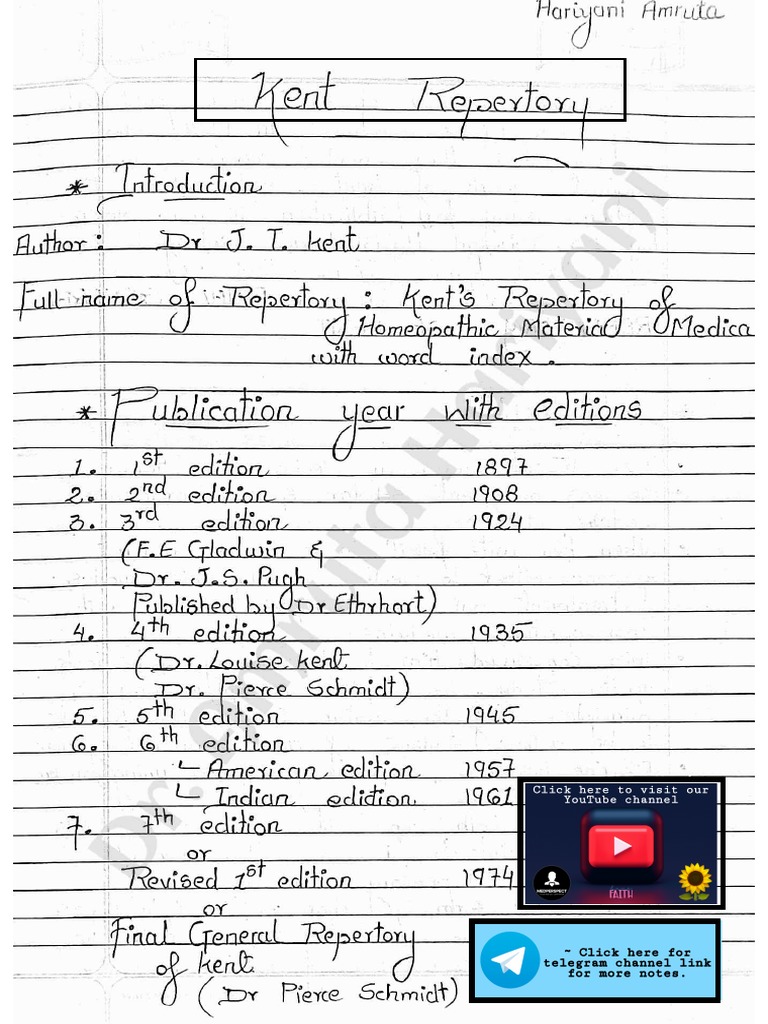 Hariyani Amruta
Kent Repertory
* Introduction
Author: Dr J. T. Kent
Full name of Repertory: Kent's Repertory of
Homeopathic Material Medica
with word index.
* Publication year with editions
1. 1st edition 1897
2. 2nd edition 1908
3. 3rd edition 1924
(F.E Gladwin &
Dr. J.S. Pugh
Published by Dr Ethrhart)
4. 4th edition 1935
(Dr. Louise Kent
Dr. Pierce Schmidt)
5. 5th edition 1945
6. 6th edition
American edition 1957
Indian edidion. 1961
7. 7th edition
or
Revised 1st edition 1974
or
Final General Repertory
of Kent
(Dr Pierce Schmidt)
Click here to visit our
YouTube channel
MEDPERSPECT
FAITH
~ Click here for
telegram channel link
for more notes.
Dr. Amruta Hariyani